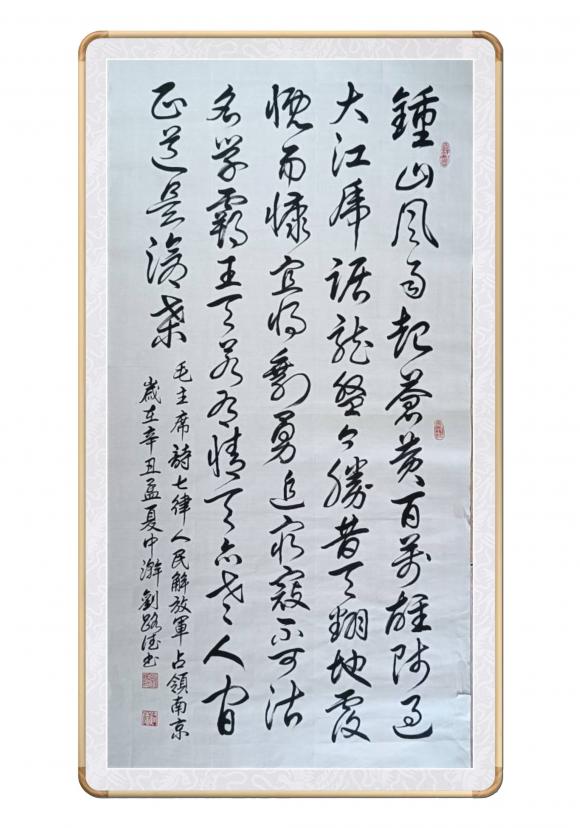 鍾山風雨起蒼黃百萬雄師過
大江虎踞龍盤今勝昔天翻地覆
慨而慷宜將剩勇追窮寇不可沽
名學霸王天若有情天亦老人間
正道是滄桑
毛主席詩七律人民解放軍占領南京
歲在辛丑孟夏中澣劉路德书